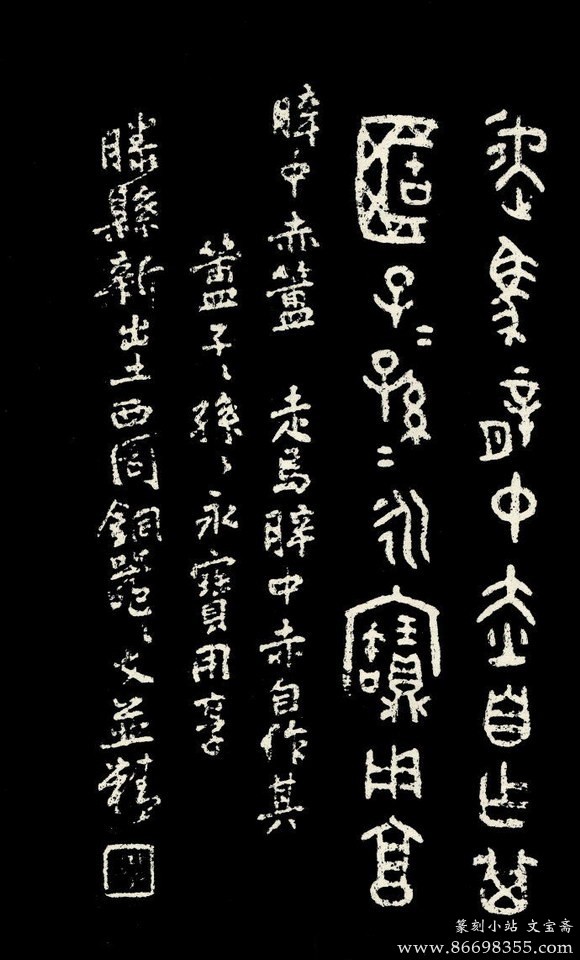 走馬薛中赤自乍其
匠子=孫=永寶用享
薛中赤簠 走馬薛中赤自作其
簠子〻孫〻永寶用享
滕縣新出土西周銅器〻文並精
篆刻小站 文宝斋
www.86698355.com